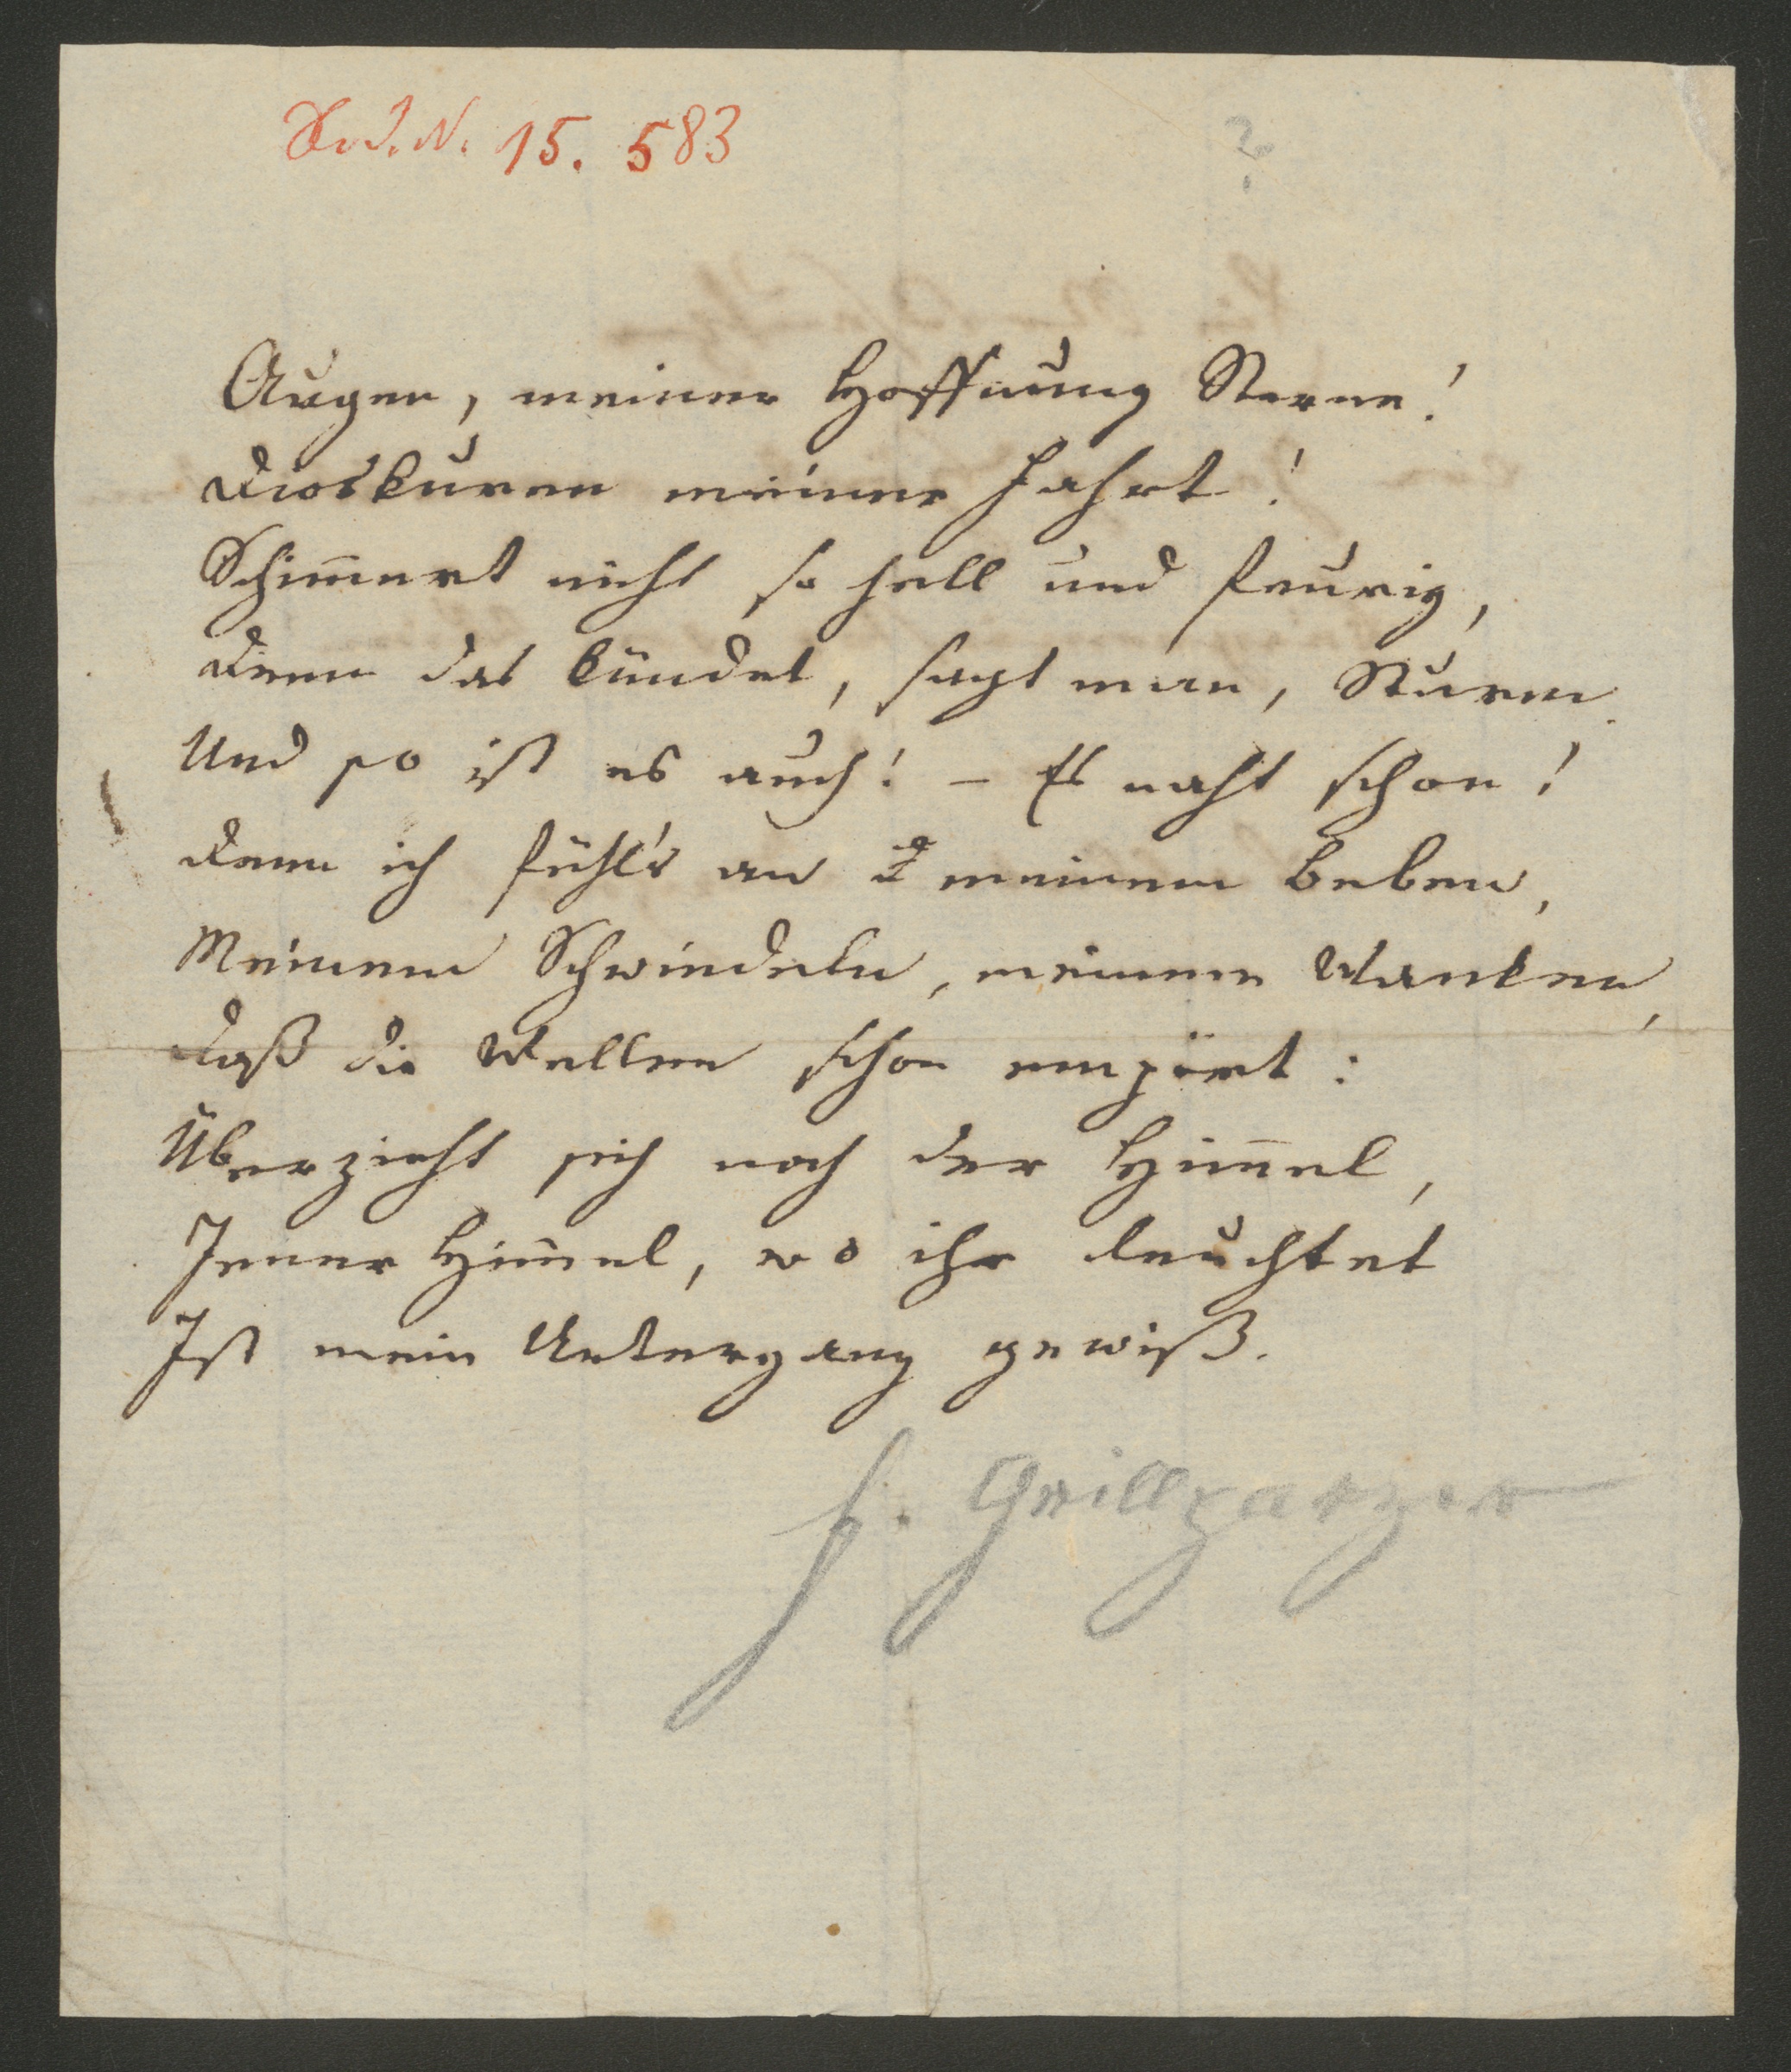 I. N. 15.583
?
Augen, meiner Hoffnung Sterne!
Dioskuren meiner Fahrt!
Schimmert nicht so hell und feurig,
Denn das kündet, sagt man, Sturm.
Und so ist es auch! – Es naht schon!
Denn ich fühl's an meinem Beben,
Meinem Schwindeln, meinem Wanken,
Daß die Wellen schon empört:
Überzieht sich noch der Him̄el,
Jener Him̄el, wo ihr leuchtet
Ist mein Untergang gewiß.
F. Grillparzer